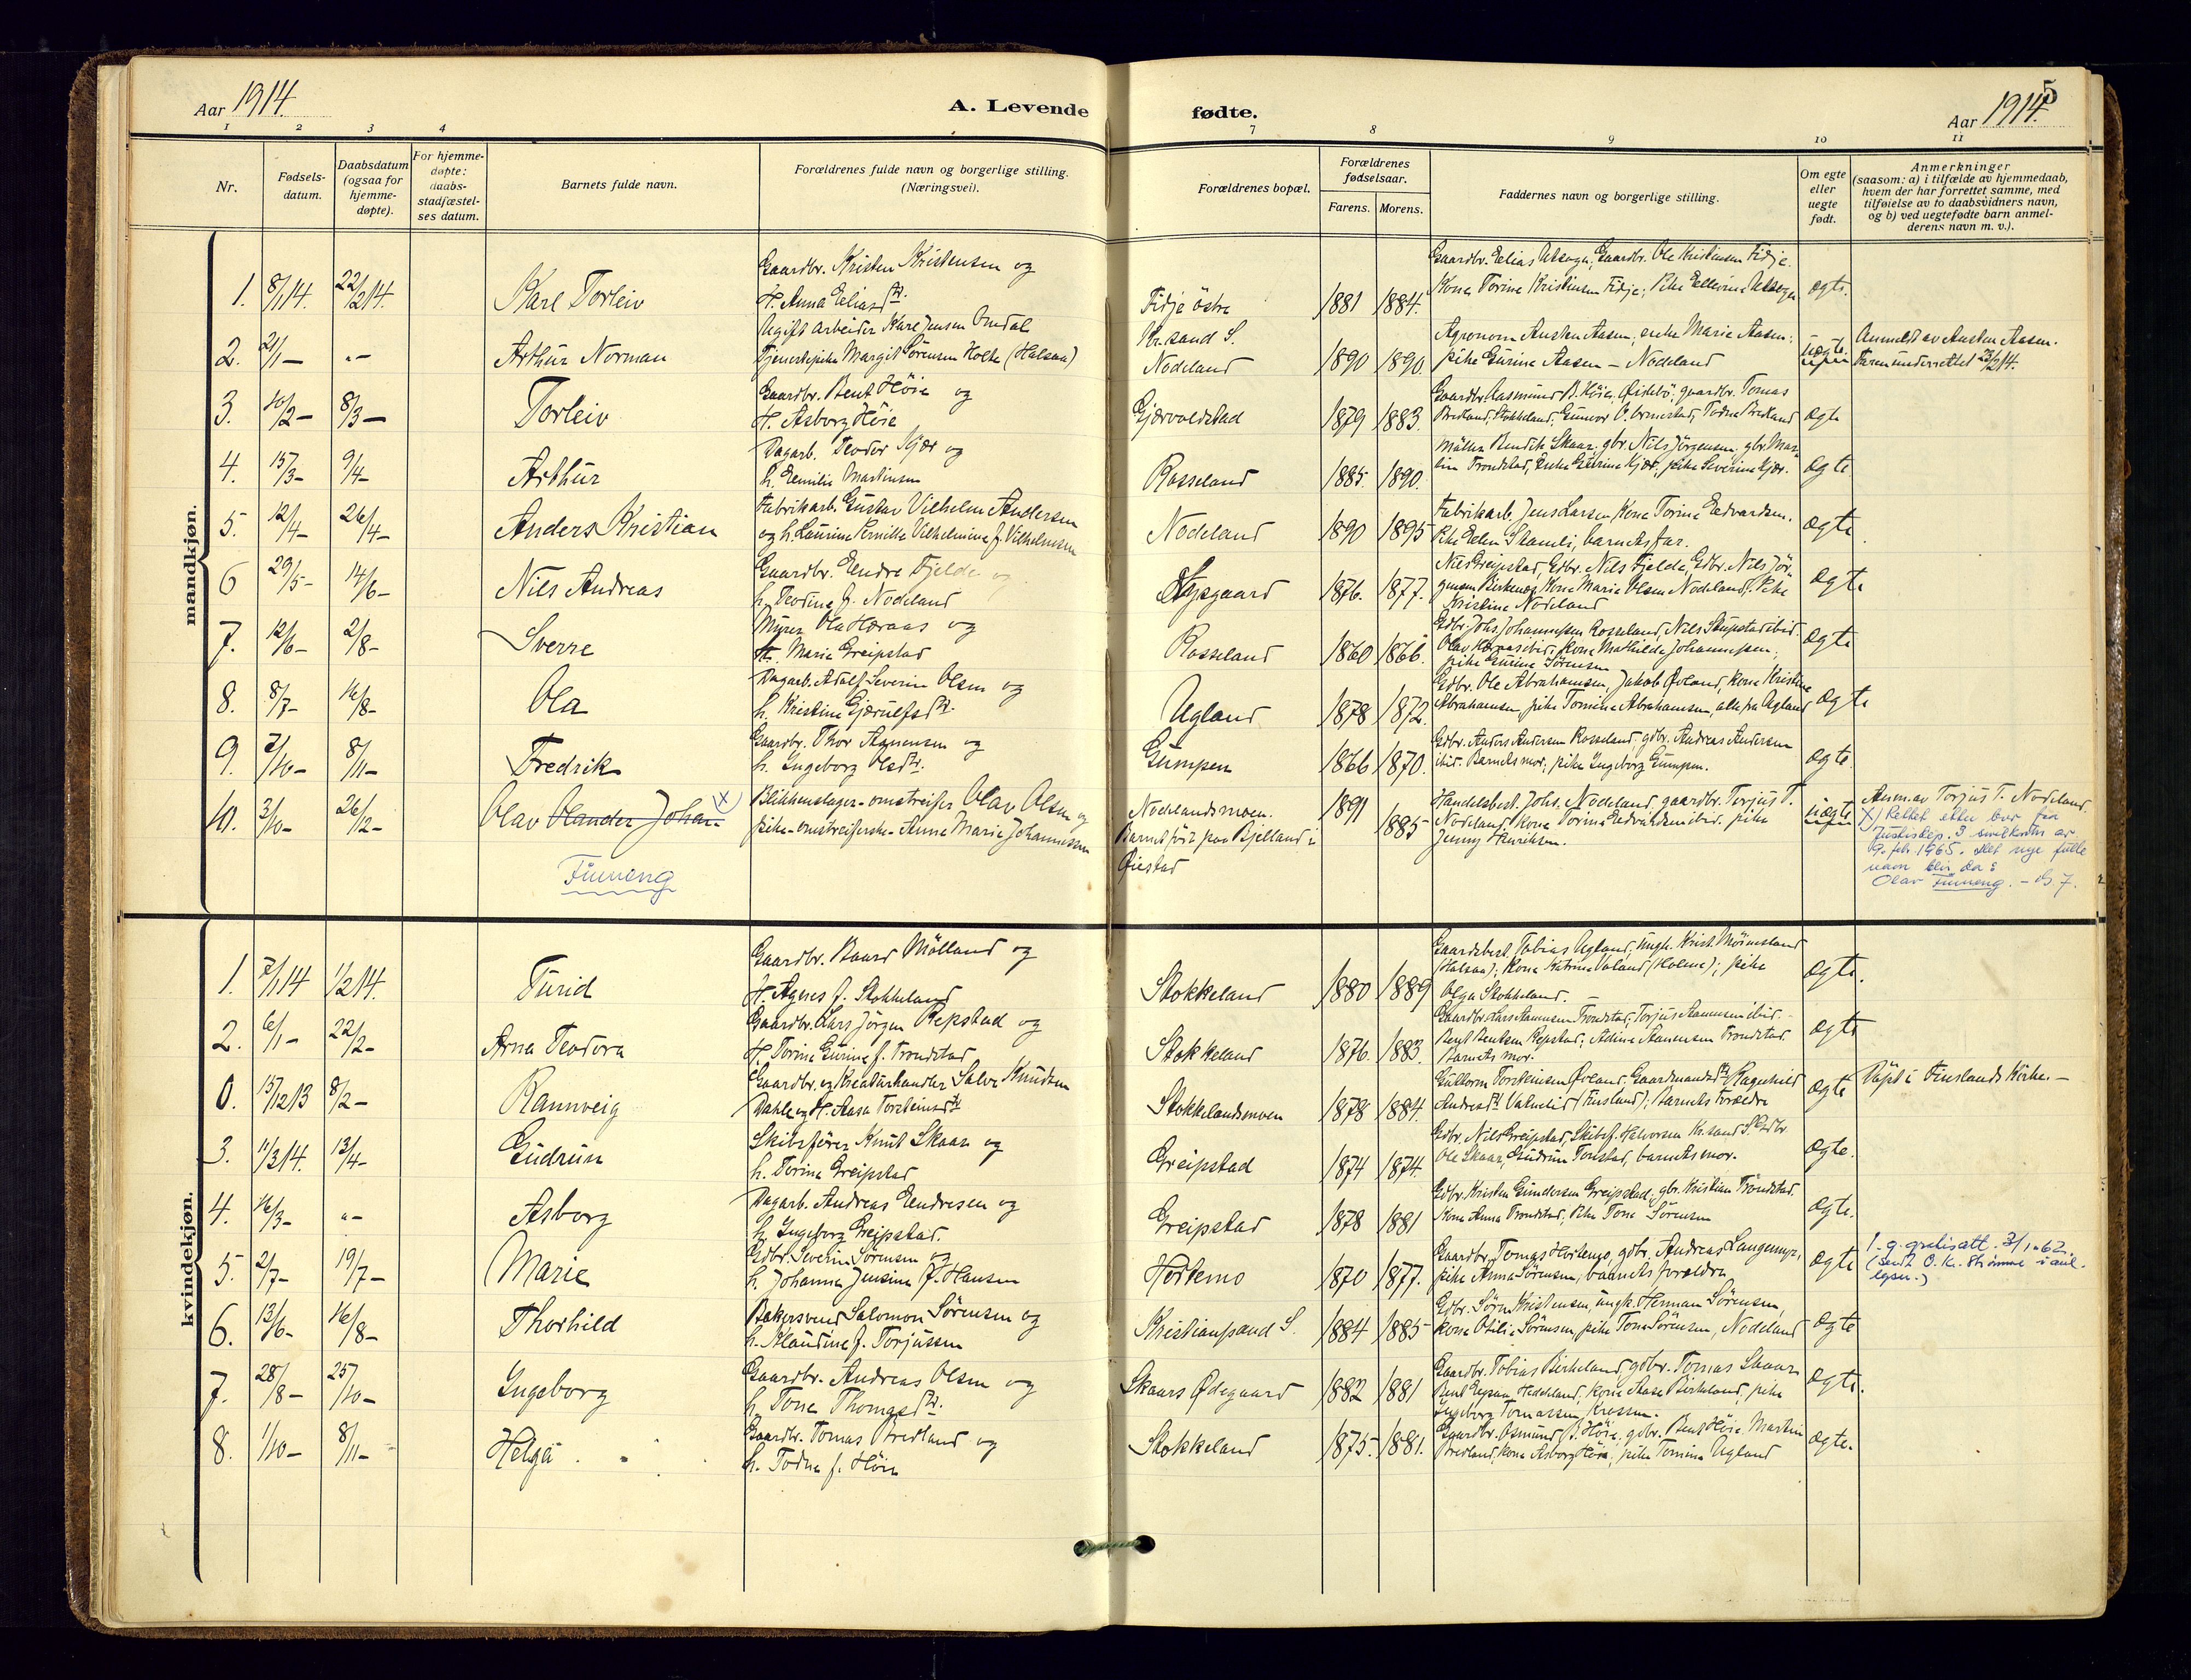 Aar 1914.
A. Levende
fødte.
5
Aar 1914.
1 2 3 4
7 8 9 10 11
Nr.
Fødsels-
datum.
Daabsdatum
(ogsaa for
hjemme-
døpte).
For hjemme-
døpte:
daabs-
stadfæstel-
ses datum.
Barnets fulde navn.
Forældrenes fulde navn og borgerlige stilling.
(Næringsvei).
Forældrenes bopæl.
Forældrenes
fødselsaar.
Farens. Morens.
Faddernes navn og borgerlige stilling.
Om egte
eller
uegte
født.
Anmerkninger
(saasom: a) i tilfælde av hjemmedaab,
hvem der har forrettet samme, med
tilføielse av to daabsvidners navn,
og b) ved uegtefødte barn anmel-
derens navn m. v.).
mandkjøn.
1. 8/1 14. 22/2 14 Karl Torleiv
Gaardbr. Kristen Kristensen og
H. Anna Eliasdtr.
Fidje östre 1881 1884.
Gaardbr. Elias Aksago, Gaardbr. Ole Kristensen Fidje.
Kona Torine Kristensen Fidje; Pike Ellerine
egte.
2. 21/1 – "– Arthur Norman
Ugift arbeider Karl Jensen Omdal
Tjenestepike Margit Sørensen Holte (Halsaa)
Kr.sand S.
Nodeland 1890 1890.
Agronom Austen Aasen; enke Marie Aasen;
pike Gurine Aasen – Nodeland
uegte
Anmeldt av Austen Aasen.
Faren underrettet 23/2 14.
3. 10/2 – 8/3 – Torleiv
Gaardbr. Bent Höie og
H. Asborg Höie
Gjervoldstad 1879 1883.
Gaardbr. Aasmund B. Höie, gaardbr. Tomas
Bredland, Stokkeland; Gunvor O. Ormestad, Todne Bredland
egte
4. 15/3 – 9/4 – Arthur
Dagarb. Teodor Kjær og
h. Emilie Martinsen
Rosseland 1885. 1890.
Möller Bendik Skaar, gbr. Nils Jörgensen, gbr. Mar-
tin Trondstad, Enke Gurine Kjær, pike Severine Kjær.
egte
5. 12/4 – 26/4 – Anders Kristian
Fabrikarb. Gustav Vilhelm Andersen
og h. Laurine Pernille Vilhelmine f. Vilhelmsen
Nodeland 1890 1895
Fabrikarb. Jens Larsen, Kona Torine Edvardsen.
Pike Ellen Skamli, barnets far.
egte
6 29/5 – 14/6 – Nils Andreas
Gaardbr. Endre Fjelde og
h. Teodine f. Nodeland
1876. 1877.
Nils Greipstad, Gdbr. Nils Fjelde, Gdbr. Nils Jör-
gensen Birkenes, Kona Marie Olsen Nodeland. Pike
Kristine Nodeland
egte
7. 12/6 – 2/8 – Sverre
Murer Ola Høraas og
H. Marie Greipstad
Rosseland 1860 1866.
Gdbr. Johs. Johannessen Rosseland, Nils ibid.
Olav Høraas ibid. Kona Mathilde Johannessen,
pike Gurine Sørensen
egte
8. 8/7 – 16/8 – Ola
Dagarb. Adolf Severin Olsen og
h. Kristine Gjærulfsdtr.
Ugland 1878 1872.
Gdbr. Ole Abrahamsen, Jakob Øvland, kona Kristine
Abrahamsen, pike Tomine Abrahamsen, alle fra Ugland
egte
9. 7/10 – 8/11 – Fredrik
Gaardbr. Thor Aanensen og
h. Ingeborg Olsdtr.
Gumpen 1866 1870.
Gdbr. Anders Andersen Rosseland, gdbr. Andreas Andersen
ibid. Barnets mor; pike Ingeborg Gumpen.
egte.
10. 3/10 – 26/12 – Olav Olander Johan X)
Finneng
Blikkenslager-omstreifer Olav Olsen og
pike-omstreiferske-Anne Marie Johannessen
Nodelandsmoen.
Barnet född paa Bjelland i
Øiestad
1891 1885
Handelsbest. Johs. Nodeland, gaardbr. Torjus T.
Nodeland, kona Torine Edvardsen ibid. pike
Jenny Henriksen.
uegte
Anm. av Torjus T. Nodeland.
X) Rettet etter brev fra
Justisdep. av
9. feb. 1965. Det nye fulle
navn blir da:
Olav Finneng. –
kvindekjøn.
1. 7/1 14 1/2 14. Turid
Gaardbr. Baard Mölland og
H. Agnes f. Stokkeland
Stokkeland 1880 1889
Gaardsbest. Tobias Ugland, ungk. Krist. Möinesland
(Halsaa); Kona Katrine Valand (Holme); pike
Olga Stokkeland.
egte.
2. 6/1 – 22/2 – Arna Teodora
Gaardbr. Lars Jörgen Repstad og
H. Torine Gurine f. Trondstad
Stokkeland 1876. 1883.
Gaardbr. Lars Aanensen Trondstad, Torjus Aanensen ibid. –
Bent Bentsen Repstad; Adine Aanensen Trondstad
Barnets mor.
egte
0. 15/12 13 8/2 – Rannveig
Gaardbr. og Kreaturhandler Salve Knudsen
Dahle og H. Aasa Torsteinsdtr
Stokkelandsmoen 1878 1884.
Gullorm Torsteinsen Øvland. Gaardmandsdtr Ragnhild
Andreasdtr Vatnelid (Finsland); Barnets Forældre
egte
Döpt i Finslands Kirke. –
3. 11/3 14. 13/4 – Gudrun
Skibsförer Knut Skaar og
h. Torine Greipstad
Greipstad 1874 1874.
Gdbr. Nils Greipstad, Skibsf. Halvorsen Kr.sand S. Gdbr.
Ole Skaar, Gudrun Tonstad, barnets mor.
egte.
4. 16/3 – "– Asborg
Dagarb. Andreas Endresen og
h. Ingeborg Greipstad.
Greipstad 1878 1881
Gdbr. Kristen Gundersen Greipstad, gbr. Kristian Trondstad.
Kona Anna Trondstad, Pike Tone Sörensen
egte.
5. 2/7 – 19/7 – Marie
Gdbr. Severin Sørensen og
h. Johanna Jensine f. Hansen
Hortemo 1870 1877.
Gaardbr. Tomas Hortemo, gdbr. Andreas Langemyr,
pike Anna Sørensen, barnets forældre
egte
1. g. gratisatt. 3/1-62.
(sendt O. Kr. Strömme i anl.
6. 13/6 – 16/8 – Thorhild
Bakersvend Salomon Sørensen og
h. Klaudine f. Torjussen
Kristianssand S. 1884 1885
Gdbr. Sörn Kristensen, ungk. Herman Sørensen,
kona Otilie Sørensen, pike Tone Sørensen, Nodeland
egte
7. 28/8 – 25/10 – Ingeborg
Gaardbr. Andreas Olsen og
h. Tone Thomasdtr.
Skaars Ødegaard 1882 1881
Gaardbr. Tobias Birkeland, gdbr. Tomas Skaar
Bent Heddeland, Kona Aasa Birkeland, pike
Ingeborg Tomassen, Krossen.
egte.
8. 1/10 – 8/11 – Helga
Gaardbr. Tomas Bredland og
h. Todne f. Höie
Stokkeland 1875. 1881.
Gaardbr. Osmund B. Höie, gdbr. Bent Höie, Martin
Bredland, kona Asborg Höie, pike Tomine Ugland
egte.